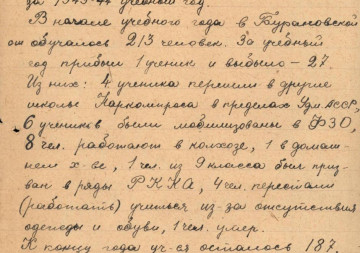 за 1943-44 учебный год.
В начале учебного года в Бурановской
обучалось 213 человек. За учебный
год прибыл 1 ученик и выбыло - 27.
Из них: 4 ученика перешли в другие
школы Наркомпроса в пределах Удм. АССР,
6 учеников были мобилизованы в ФЗО,
8 чел. работают в колхозе, 1 в домаш-
нем х-ве, 1 чел. из 9 класса был приз-
ван в ряды РККА, 4 чел. перестали
(работать) учиться из-за отсутствия
одежды и обуви, 1 чел. умер.
К концу года уч-ся осталось 187.